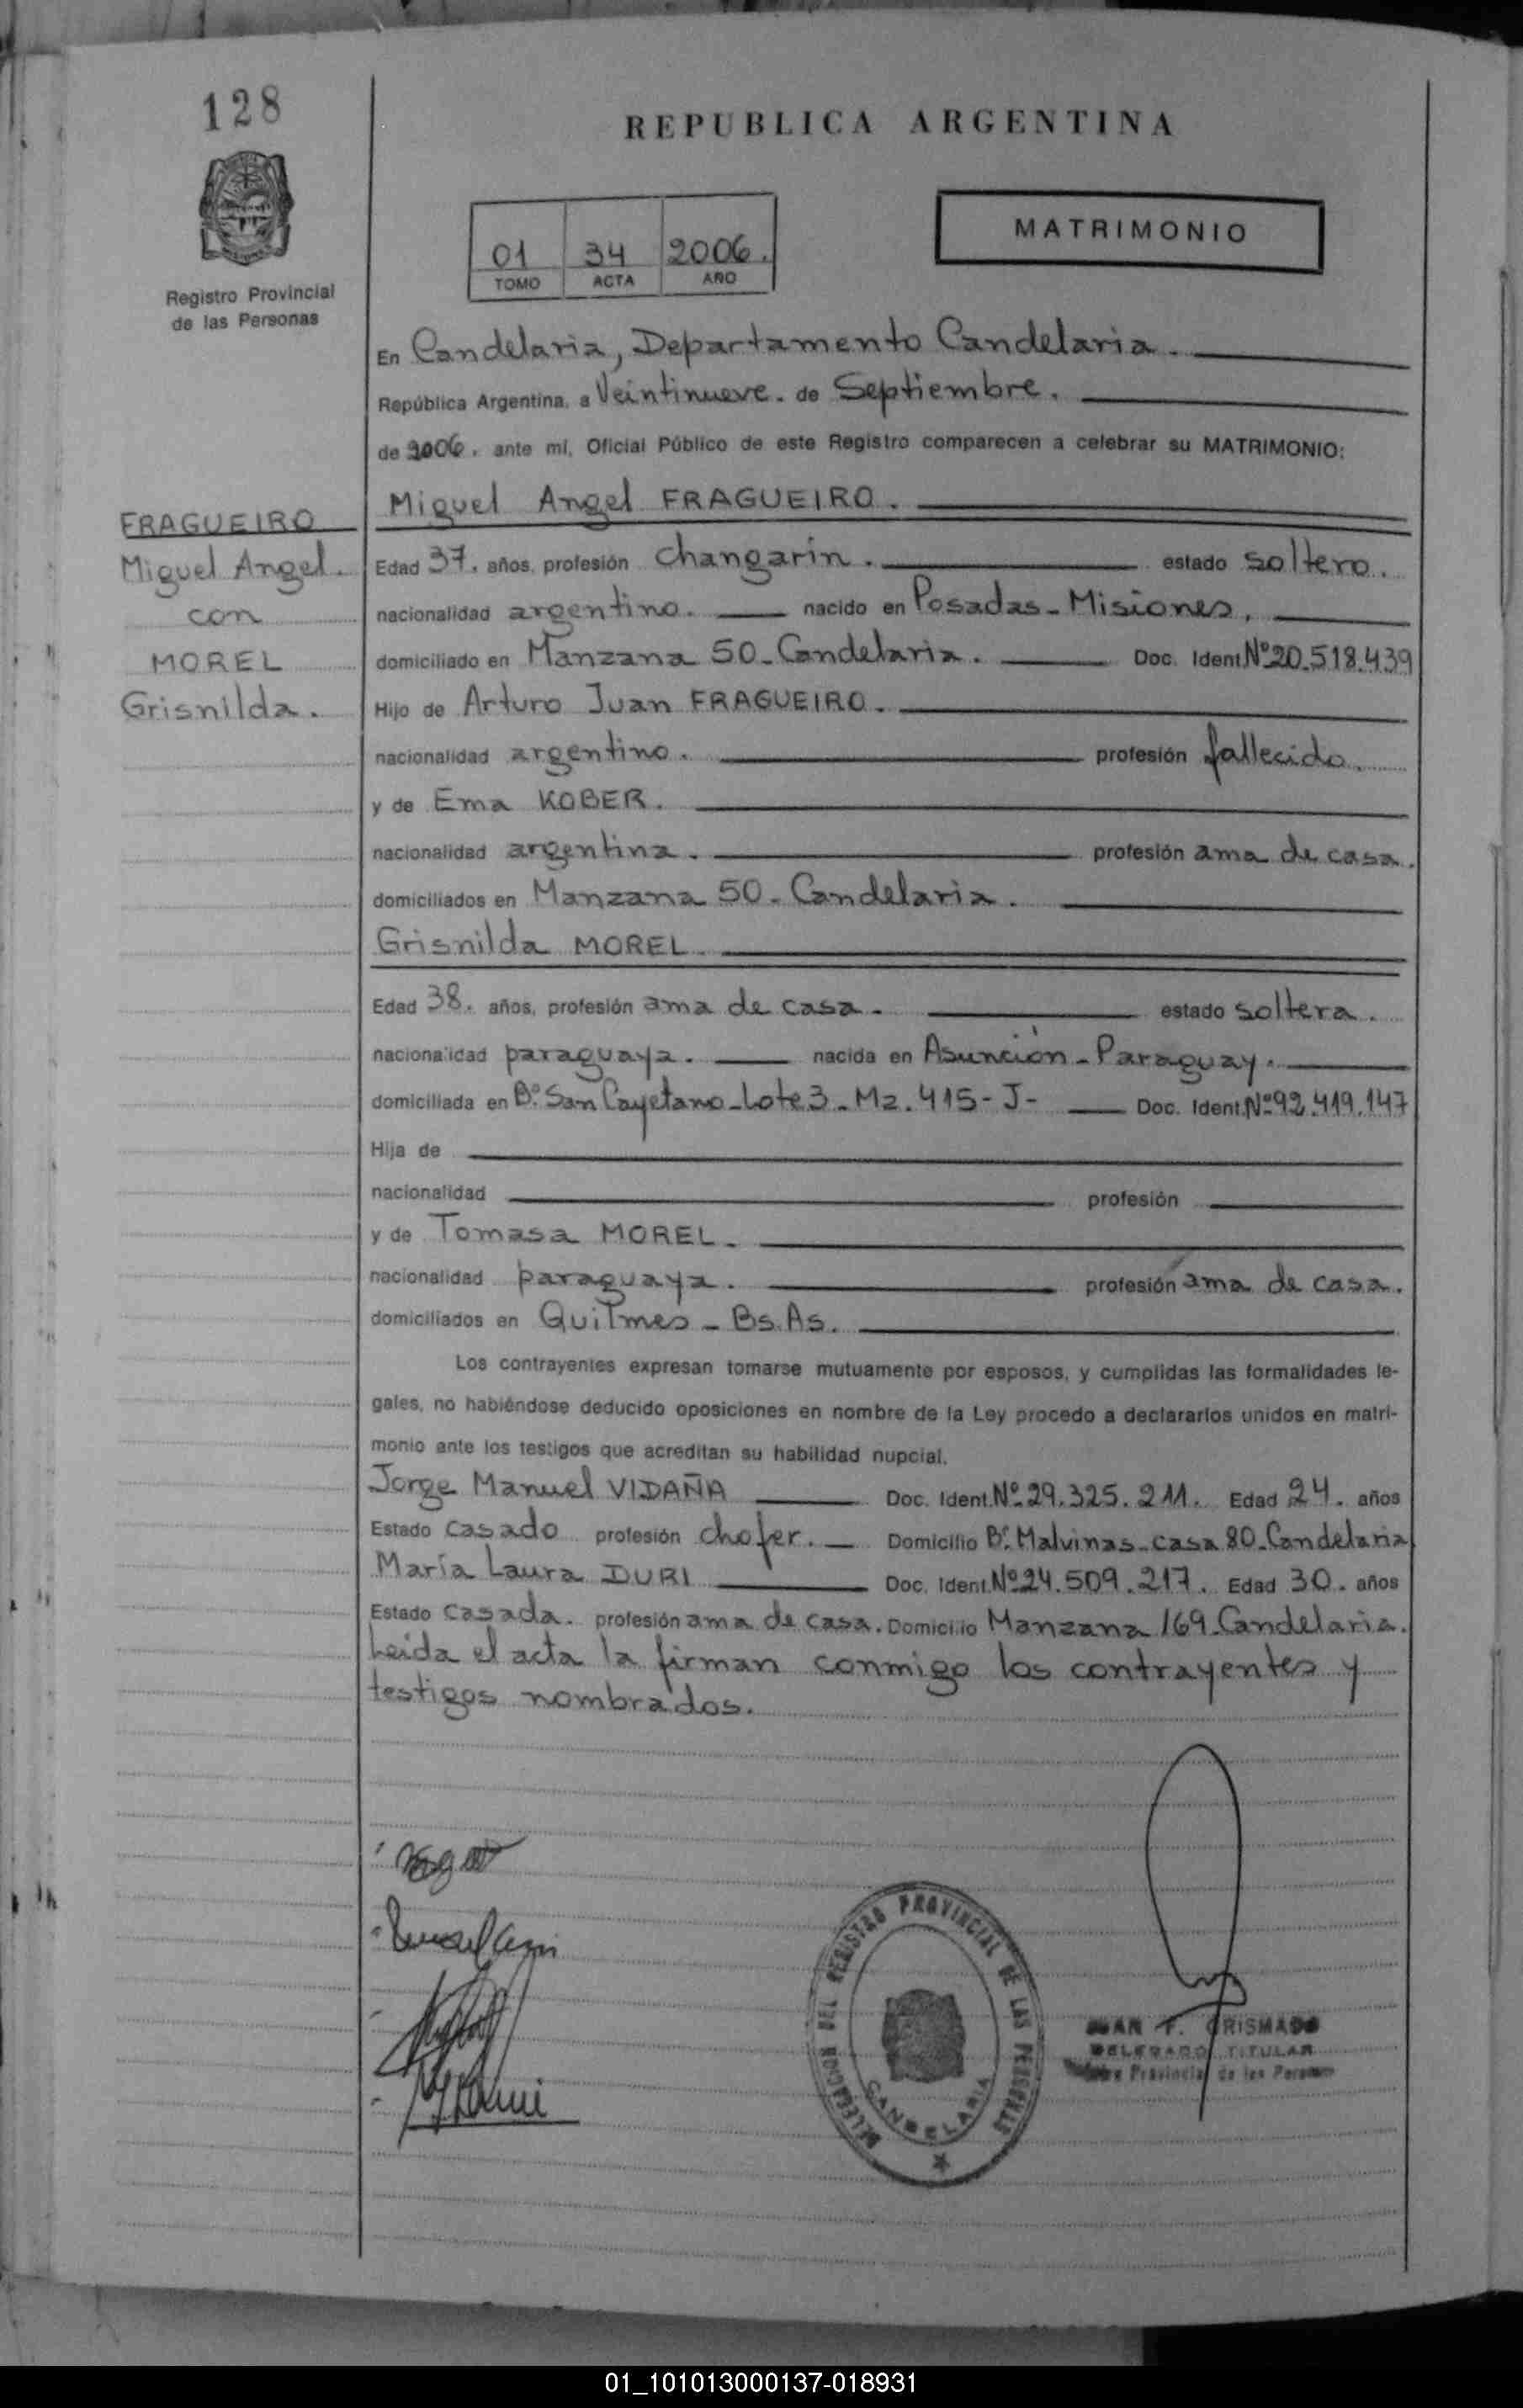 128
REPUBLICA ARGENTINA
01 34 2006.
TOMO ACTA AÑO
MATRIMONIO
Registro Provincial
de las Personas
En Candelaria, Departamento Candelaria.
República Argentina, a Veintinueve. de Septiembre.
de 2006. ante mí, Oficial Público de este Registro comparecen a celebrar su MATRIMONIO:
Miguel Angel FRAGUEIRO.
FRAGUEIRO
Miguel Angel.
con
MOREL
Grisnilda.
Edad 37. años, profesión changarín. estado soltero.
nacionalidad argentino. nacido en Posadas - Misiones.
domiciliado en Manzana 50 - Candelaria. Doc. Ident. Nº 20.518.439
Hijo de Arturo Juan FRAGUEIRO.
nacionalidad argentino. profesión fallecido.
y de Ema KOBER.
nacionalidad argentina. profesión ama de casa.
domiciliados en Manzana 50 - Candelaria.
Grisnilda MOREL
Edad 38. años, profesión ama de casa. estado soltera.
nacionalidad paraguaya. nacida en Asunción - Paraguay.
domiciliada en Bº San Cayetano - Lote 3 - Mz. 415 - J - Doc. Ident. Nº 92.419.147
Hija de
nacionalidad profesión
y de Tomasa MOREL.
nacionalidad paraguaya. profesión ama de casa.
domiciliados en Quilmes - Bs. As.
Los contrayentes expresan tomarse mutuamente por esposos, y cumplidas las formalidades le-
gales, no habiéndose deducido oposiciones en nombre de la Ley procedo a declararlos unidos en matri-
monio ante los testigos que acreditan su habilidad nupcial.
Jorge Manuel VIDAÑA Doc. Ident. Nº 29.325.211. Edad 24. años
Estado casado profesión chofer. Domicilio Bº Malvinas - casa 80 - Candelaria
María Laura DURI Doc. Ident. Nº 24.509.217. Edad 30. años
Estado casada. profesión ama de casa. Domicilio Manzana 169 - Candelaria.
Leída el acta la firman conmigo los contrayentes y
testigos nombrados.
DELEGACION DEL REGISTRO PROVINCIAL DE LAS PERSONAS
CANDELARIA
JUAN F. GRISMADO
DELEGADO TITULAR
Provincial de las Personas
01_101013000137-018931